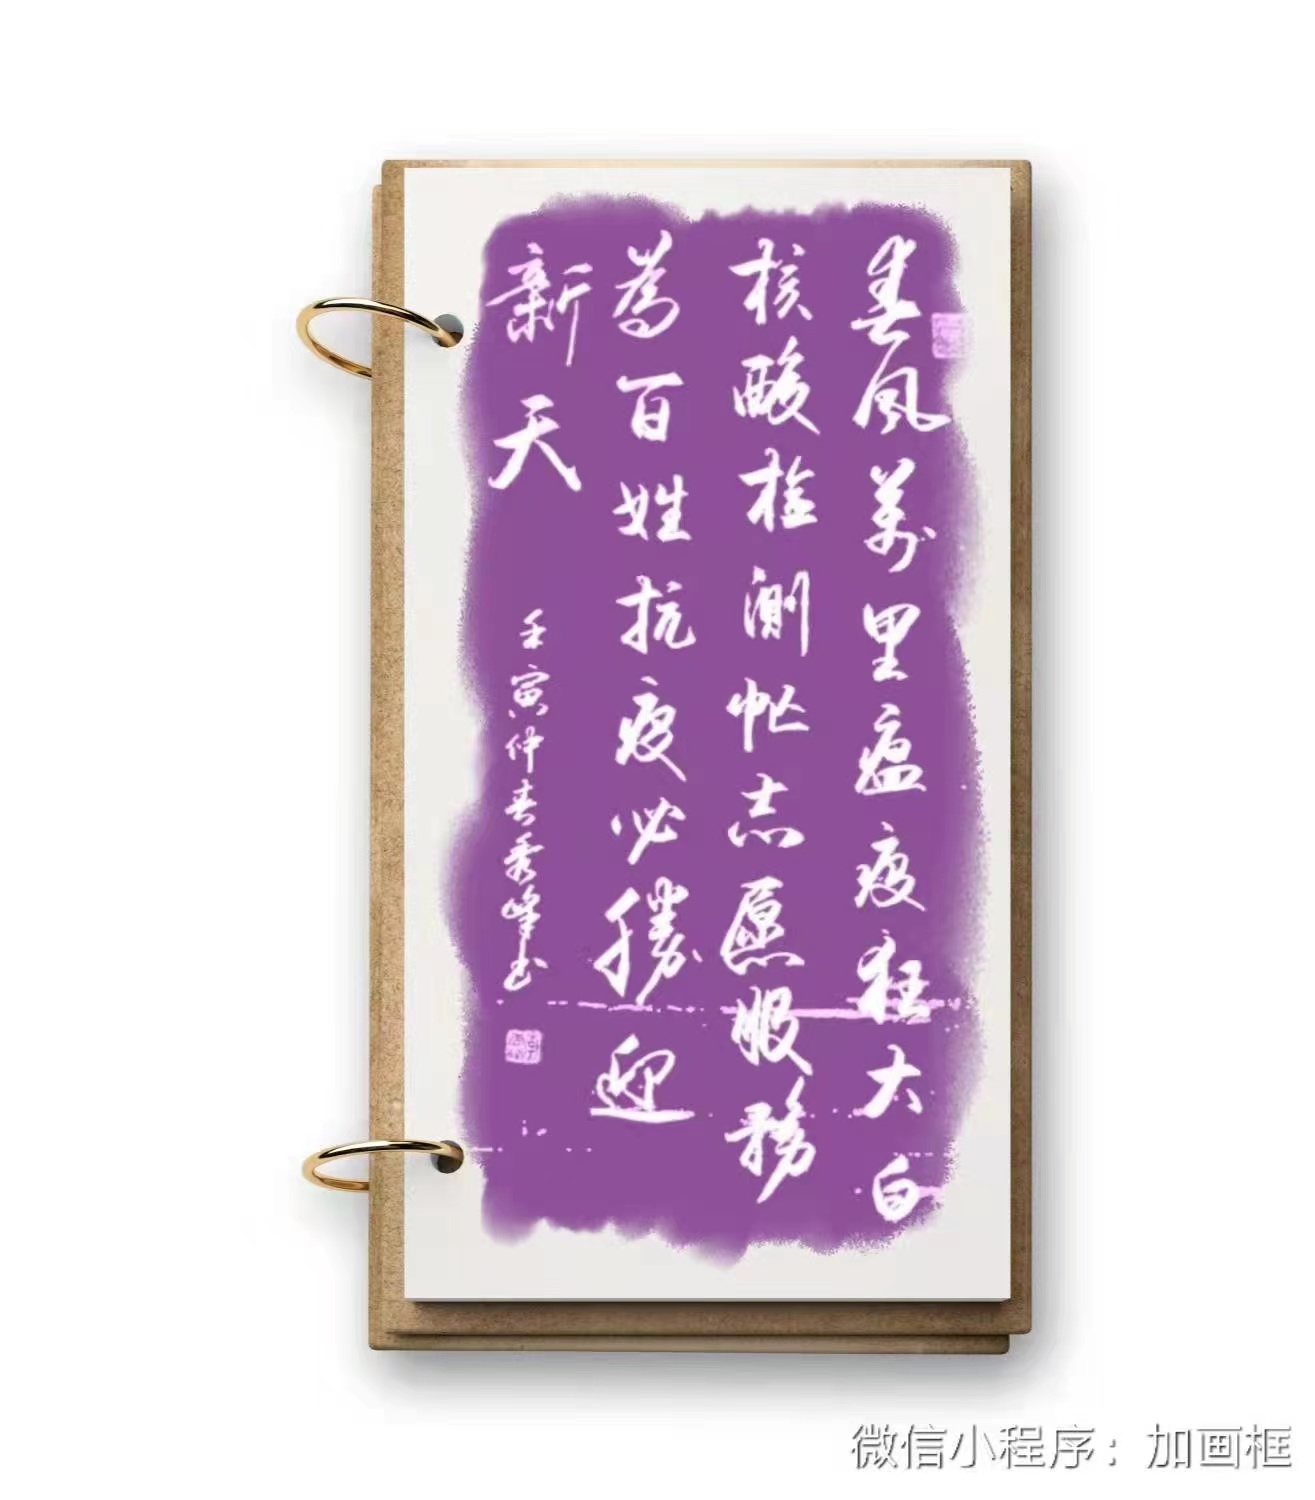 春风萬里瘟疫狂大白
核酸检测忙志愿服務
為百姓抗疫必勝迎
新天
壬寅仲春秀峰书
微信小程序：加画框